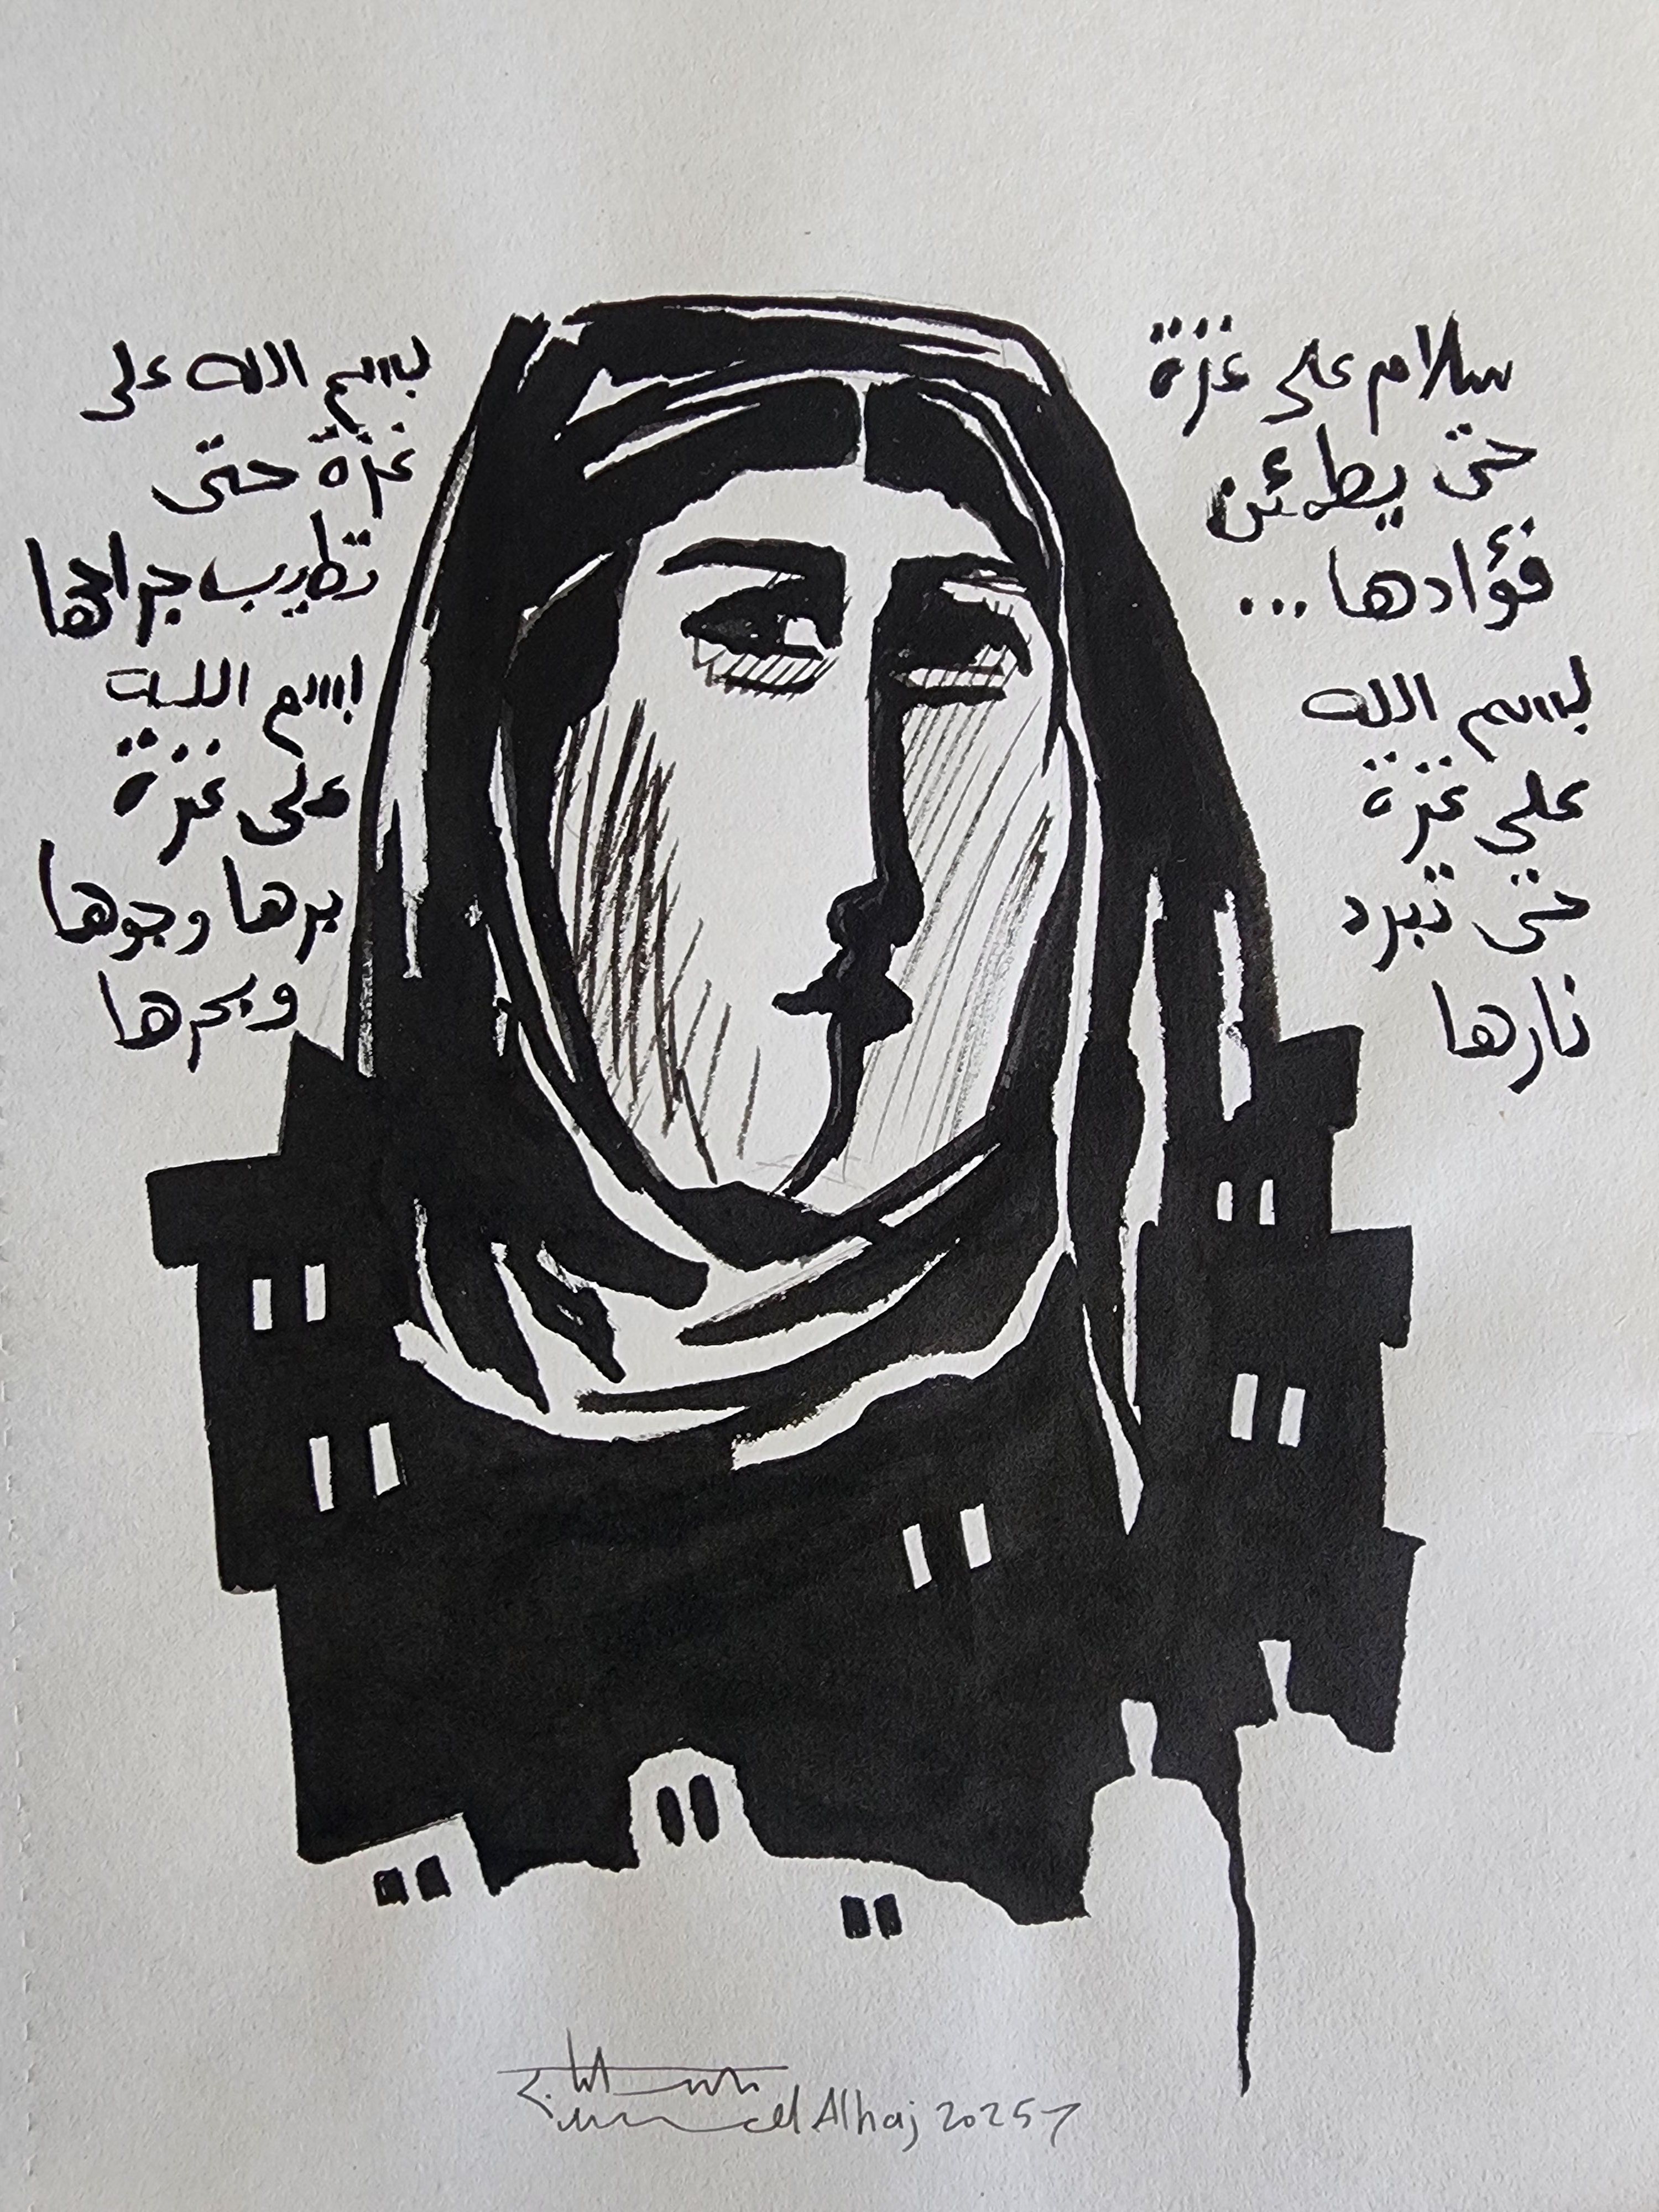 سلام على غزة
حتى يطمئن
فؤادها...
بسم الله
على غزة
حتى تبرد
نارها
بسم الله على
غزة حتى
تطيب جراحها
بسم الله
على غزة
برها وجوها
وبحرها
Alhaj 2025